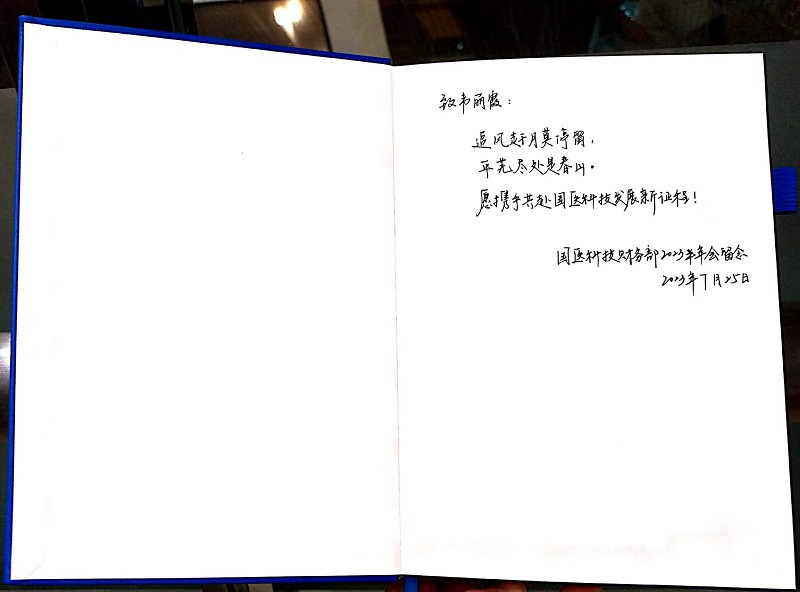 致韦丽霞：
追风赶月莫停留，
平芜尽处是春山。
愿携手共赴国医科技发展新征程！
国医科技财务部2023半年会留念
2023年7月25日